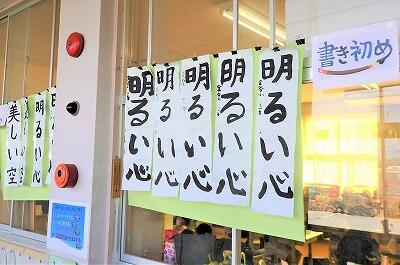 書き初め
明るい心
明るい心
明るい心
明るい心
明るい心
明るい
美しい空